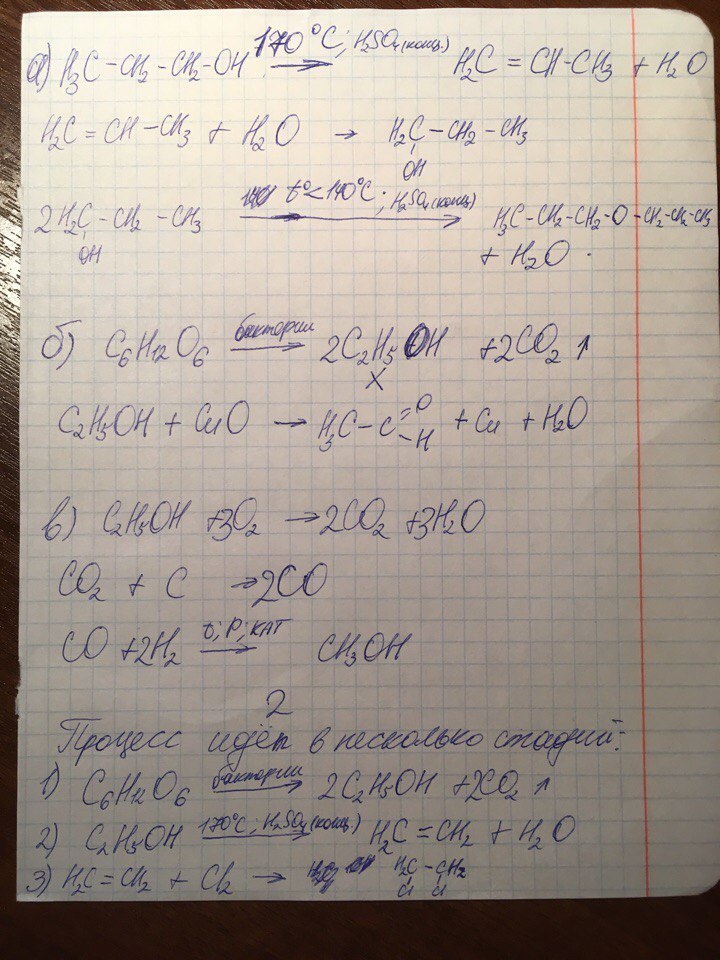 а) H3C – CH2 – CH2 – OH 170°C; H2SO4 (конц.) → H2C = CH – CH3 + H2O
H2C = CH – CH3 + H2O → H2C – CH2 – CH3
OH
2H2C – CH2 – CH3 t°<140°C; H2SO4 (конц) → H3C – CH2 – CH2 – O – CH2 – CH2 – CH3
OH
+ H2O
б) C6H12O6 бактерии → 2C2H5OH + 2CO2 ↑
X
C2H5OH + CuO → H3C – C =O –H + Cu + H2O
в) C2H5OH + 3O2 → 2CO2 + 3H2O
CO2 + C → 2CO
CO + 2H2 t; P; КАТ → CH3OH
2
Процесс идёт в несколько стадий:
1) C6H12O6 бактерии → 2C2H5OH + 2CO2 ↑
2) C2H5OH 170°C; H2SO4 (конц.) → H2C = CH2 + H2O
3) H2C = CH2 + Cl2 → H2C – CH2
Cl Cl